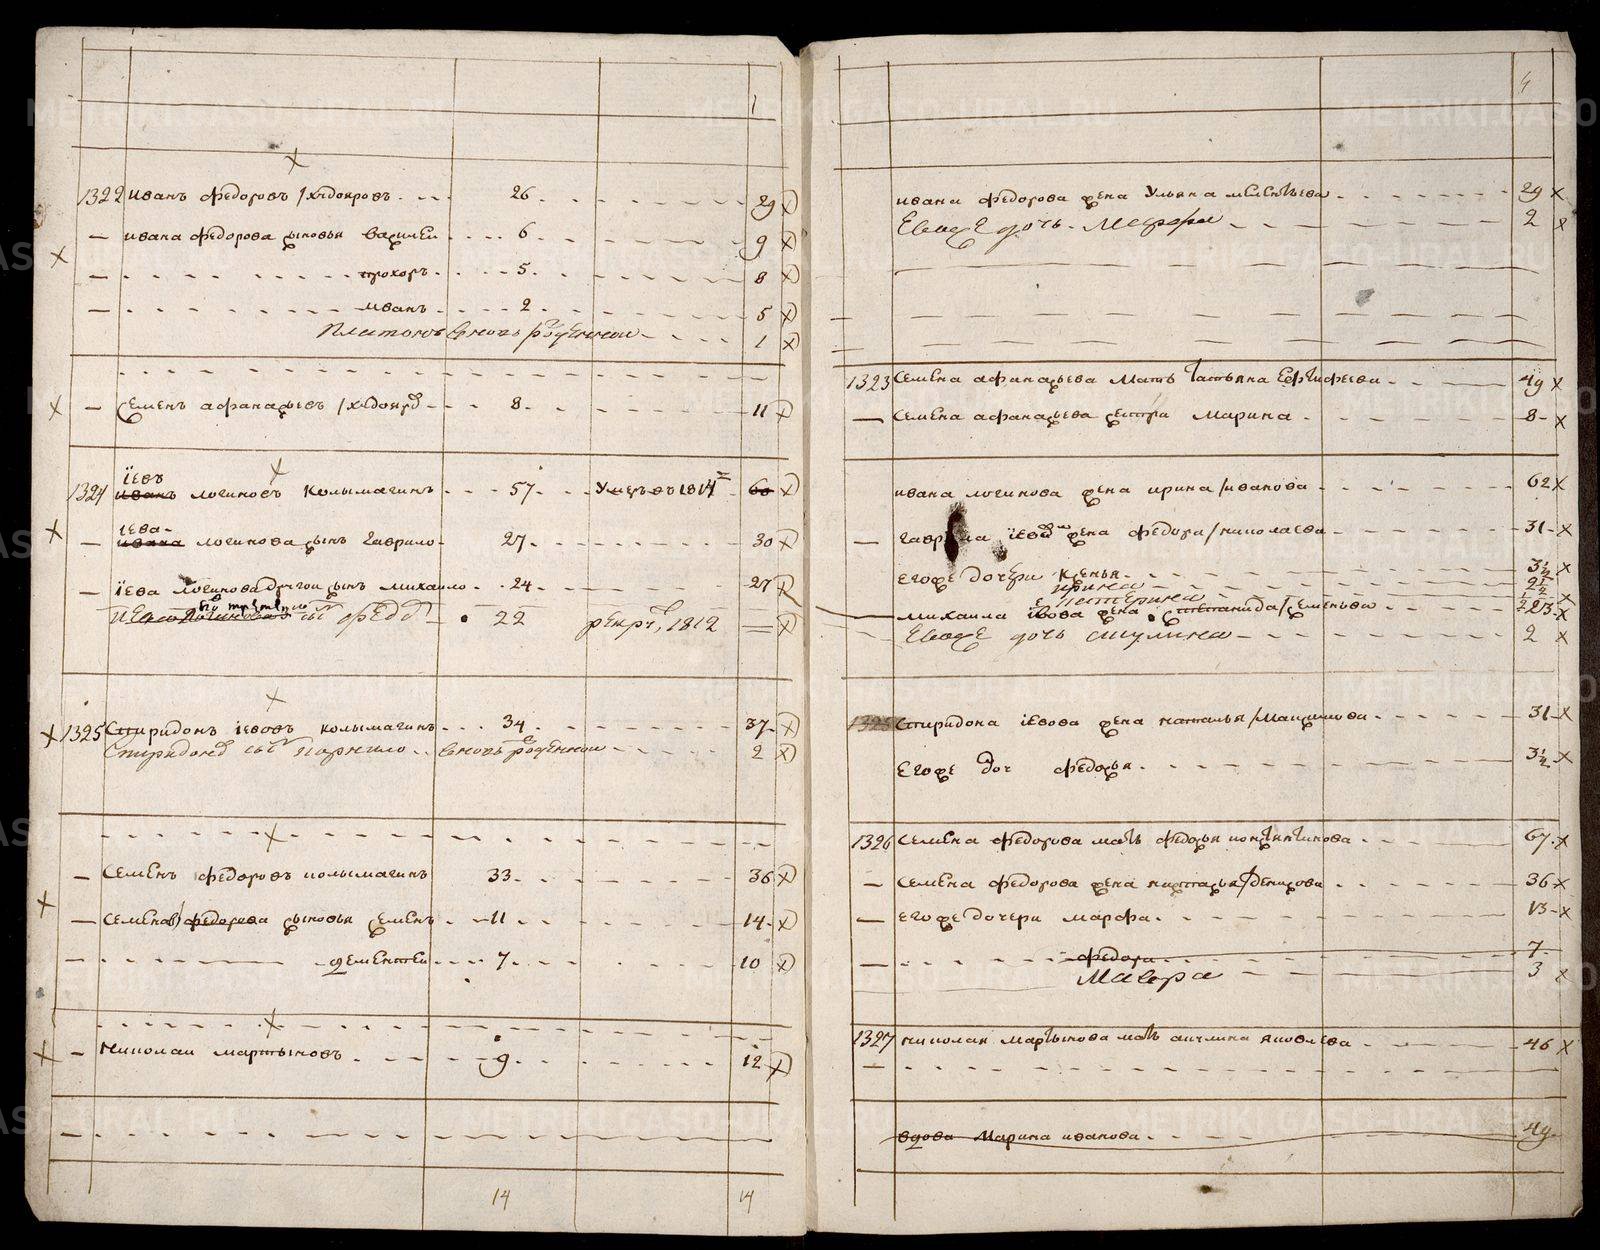 1
1322 Иванъ Федоровъ / Хлдояровъ 26 29
Ивана Федорова сыновья Василеи 6 9
прохоръ 5 8
Иванъ 2 5
Платонъ вновь рожденнои 1
Семенъ Афанасьевъ / 8 11
Іевъ
1324 Иванъ Логиновъ Колымагинъ 57 Умеръ въ 1814 60
Іева
Ивана Логинова сынъ Гаврило 27 30
Іева Логинова другои сынъ Михаило 24 27
третеи
Федо 22 рекру 1812
1325 Спиридонъ Іевовъ Колымагинъ 34 37
Спиридонo сы Корнило вновь рожденнои 2
Семенъ Федоровъ Колымагинъ 33 36
Семенов Федорова сыновья Семенъ 11 14
дементеи 7 10
Николаи Мартыновъ 9 12
14 14
4
Ивана Федорова жена Ульяна Мелентьева 29
Евоже дочь Марфа 2
1323 Семена Афанасьева Мать Татьяна Ефтифеева 49
Семена Афанасьева сестра Марина 8
Ивана Логинова жена Ирина / Иванова 62
Гаврила Іева жена Федора / Николаева 31
Егоже дочери Ксенья 3½
Ирина
Катерина
Михаила Івова жена Степанида / Семенова 23
Евоже дочь Акулина 2
1325 Спиридона Іевова жена Наталья / Максимова 31
Егоже доч Федосья 3½
1326 Семена Федорова мать Федосья Констянтинова 67
Семена Федорова жена Настасья / Денисова 36
Егоже дочери Марфа 13
Федора 7
Мавра 3
1327 Николая Мартынова мать Акулина Яковлева 46
вдова Марина Иванова 49